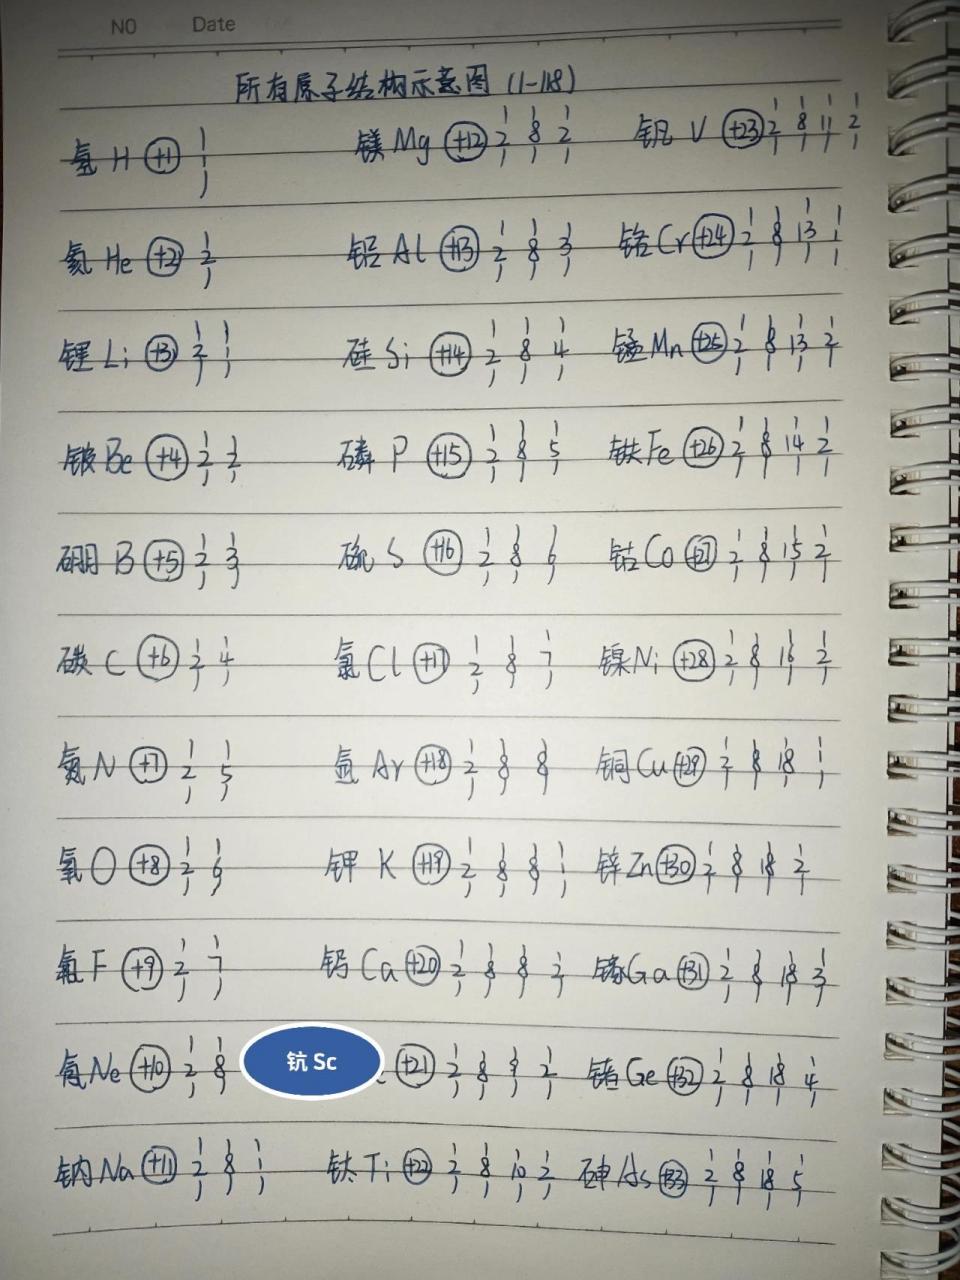 NO Date
所有原子结构示意图 (1-118)
氢 H +1 1
镁 Mg +12 2 8 2
钒 V +23 2 8 11 2
氦 He +2 2
铝 Al +13 2 8 3
铬 Cr +24 2 8 13 1
锂 Li +3 2 1
硅 Si +14 2 8 4
锰 Mn +25 2 8 13 2
铍 Be +4 2 2
磷 P +15 2 8 5
铁 Fe +26 2 8 14 2
硼 B +5 2 3
硫 S +16 2 8 6
钴 Co +27 2 8 15 2
碳 C +6 2 4
氯 Cl +17 2 8 7
镍 Ni +28 2 8 16 2
氮 N +7 2 5
氩 Ar +18 2 8 8
铜 Cu +29 2 8 18 1
氧 O +8 2 6
钾 K +19 2 8 8 1
锌 Zn +30 2 8 18 2
氟 F +9 2 7
钙 Ca +20 2 8 8 2
镓 Ga +31 2 8 18 3
氖 Ne +10 2 8
钪 Sc +21 2 8 9 2
锗 Ge +32 2 8 18 4
钠 Na +11 2 8 1
钛 Ti +22 2 8 10 2
砷 As +33 2 8 18 5